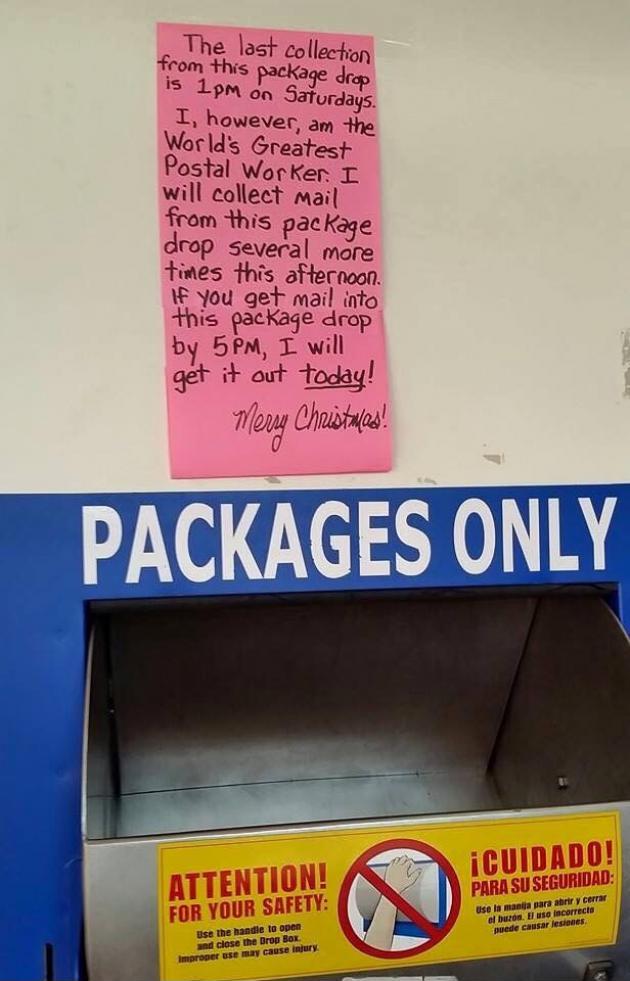 The last collection
from this package drop
is 1pm on Saturdays.
I, however, am the
World's Greatest
Postal Worker. I
will collect mail
from this package
drop several more
times this afternoon.
If you get mail into
this package drop
by 5PM, I will
get it out today!
Merry Christmas!
PACKAGES ONLY
ATTENTION!
FOR YOUR SAFETY:
Use the handle to open
and close the Drop Box.
Improper use may cause injury.
¡CUIDADO!
PARA SU SEGURIDAD:
Use la manija para abrir y cerrar
el buzón. El uso incorrecto
puede causar lesiones.